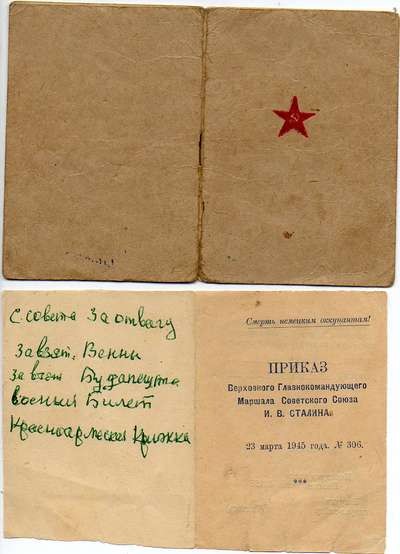 С. совета За отвагу
За взят. Венны
За взят Будапешта
военный Билет
Красноармеская Книжка
Смерть немецким оккупантам!
ПРИКАЗ
Верховного Главнокомандующего
Маршала Советского Союза
И. В. СТАЛИНА
23 марта 1945 года. № 306.
***